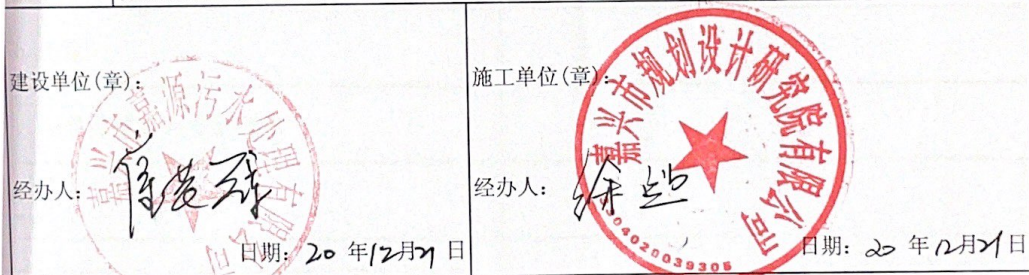 建设单位(章):
嘉兴市嘉源污水处理有限公司
经办人:
日期: 20 年12月21 日
施工单位(章):
嘉兴市规划设计研究院有限公司
经办人: 徐
304020039305
日期: 20 年12月21日